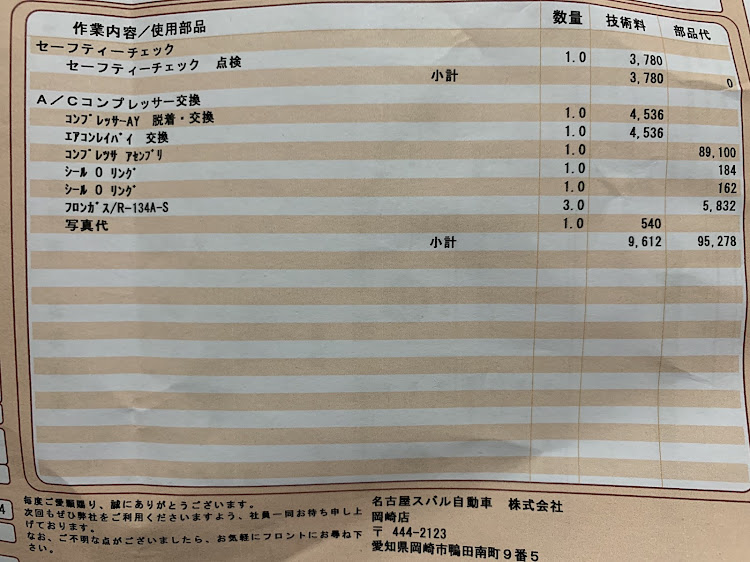 作業内容/使用部品 数量 技術料 部品代
セーフティーチェック
セーフティーチェック 点検 1.0 3,780
小計 3,780 0
A/Cコンプレッサー交換
ｺﾝﾌﾟﾚｯｻｰAY 脱着・交換 1.0 4,536
ｴｱｺﾝﾚｲﾊﾞｲ 交換 1.0 4,536
ｺﾝﾌﾟﾚﾂｻ ｱｾﾝﾌﾞﾘ 1.0 89,100
ｼｰﾙ O ﾘﾝｸﾞ 1.0 184
ｼｰﾙ O ﾘﾝｸﾞ 1.0 162
ﾌﾛﾝｶﾞｽ/R-134A-S 3.0 5,832
写真代 1.0 540
小計 9,612 95,278
毎度ご愛顧賜り、誠にありがとうございます。
次回もぜひ弊社をご利用くださいますよう、社員一同お待ち申し上
げております。
なお、ご不明な点がございましたら、お気軽にフロントにお尋ね下
さい。
名古屋スバル自動車 株式会社
岡崎店
〒 444-2123
愛知県岡崎市鴨田南町９番５
4